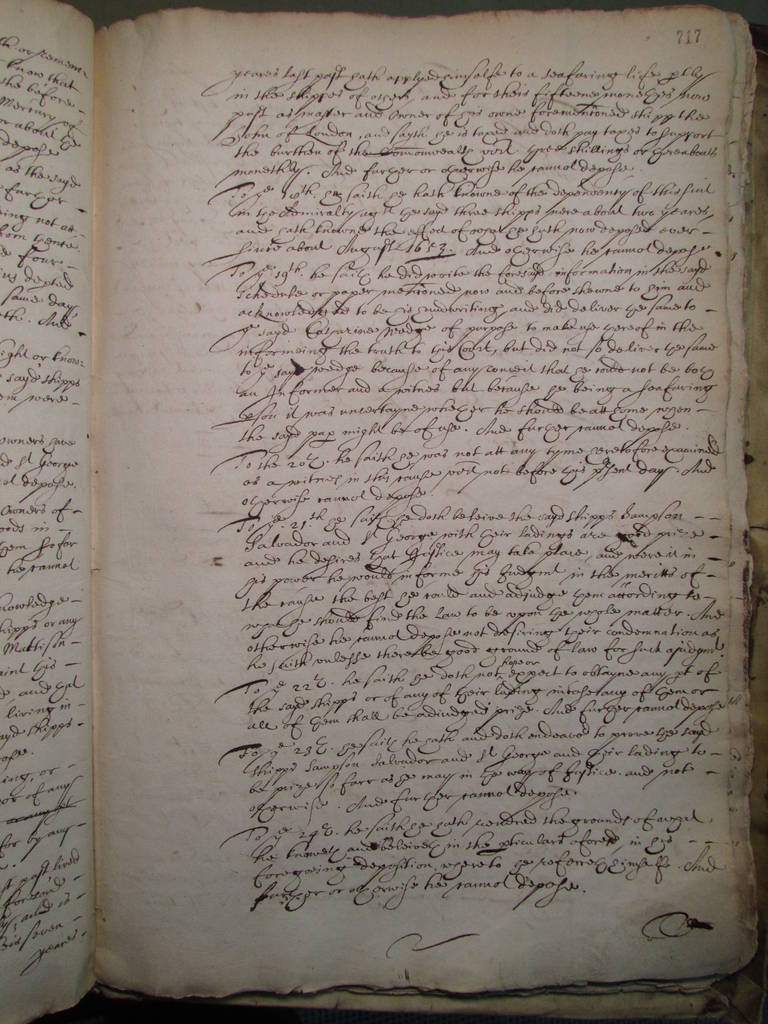 717
yeares last past hath applyed himselfe to a seafaring life, partly
in the shipps of others, and for theis fifteene monethes now
past as master and owner of his owne forementioned shipp the
John of London, and sayth he is taxed and doth pay taxes to support
the burthen of the Commonwealth vizt three shillings or thereabouts
monethly. And further or otherwise he cannot depose.
To ye 18th. he saith he hath knowne of the dependency of this suit
in the Admiralty agt the sayd three shipps neere about two yeares,
and hath knowne the effect of what he hath now deposed ever
since about August 1653. And otherwise he cannot depose
To ye 19th. he saith he did write the foresayd information in the sayd
schedule or paper mentioned now and before shewne to him and
acknowledged to be his handwriting, and did deliver the same to
ye sayd Catharine wedge of purpose to make use thereof in the
informeing the truth to this Court, but did not so deliver the same
to ye sayd wedge because of any conceit that he could not be both
an Informer and a witnes but because he being a seafaring
pson it was uncertayne whether he should be att home when
the sayd pap might be of use. And further cannot depose.
To the 20th. he saith he was not att any tyme heretofore examined
as a witnes in this cause vizt not before this psent day. And
otherwise cannot depose.
To ye 21th he saith he doth beleive the sayd shipps Sampson
Salvador and St George with their ladings are good prize
and he desires that Justice may take place, and were it in
his power he would informe his Judgmt in the meritts of
the cause the best he could and adjudge them according to
what he should find the law to be upon the whole matter. And
otherwise he cannot depose not desiring their condemnation as
he saith unlesse there be good ground of law for such a judgmt
To ye 22th. he saith he doth not hope or expect to obtayne any pt of
the sayd shipps or of any of their lading in case any of them or
all of them shall be adiudged prize. And further cannot depose
To ye 23th. he saith he hath and doth endeavor to prove the sayd
shipps Sampson Salvador and St George and their lading to
be prize so farr as he may in the way of Justice. and not
otherwise. And further cannot depose.
To ye 24th. he saith he hath rendred the grounds of what
he knoweth and beleiveth in the pticulars aforesd, in his
foregoing deposition, whereto he referreth himselfe. And
further or otherwise hee cannot depose.